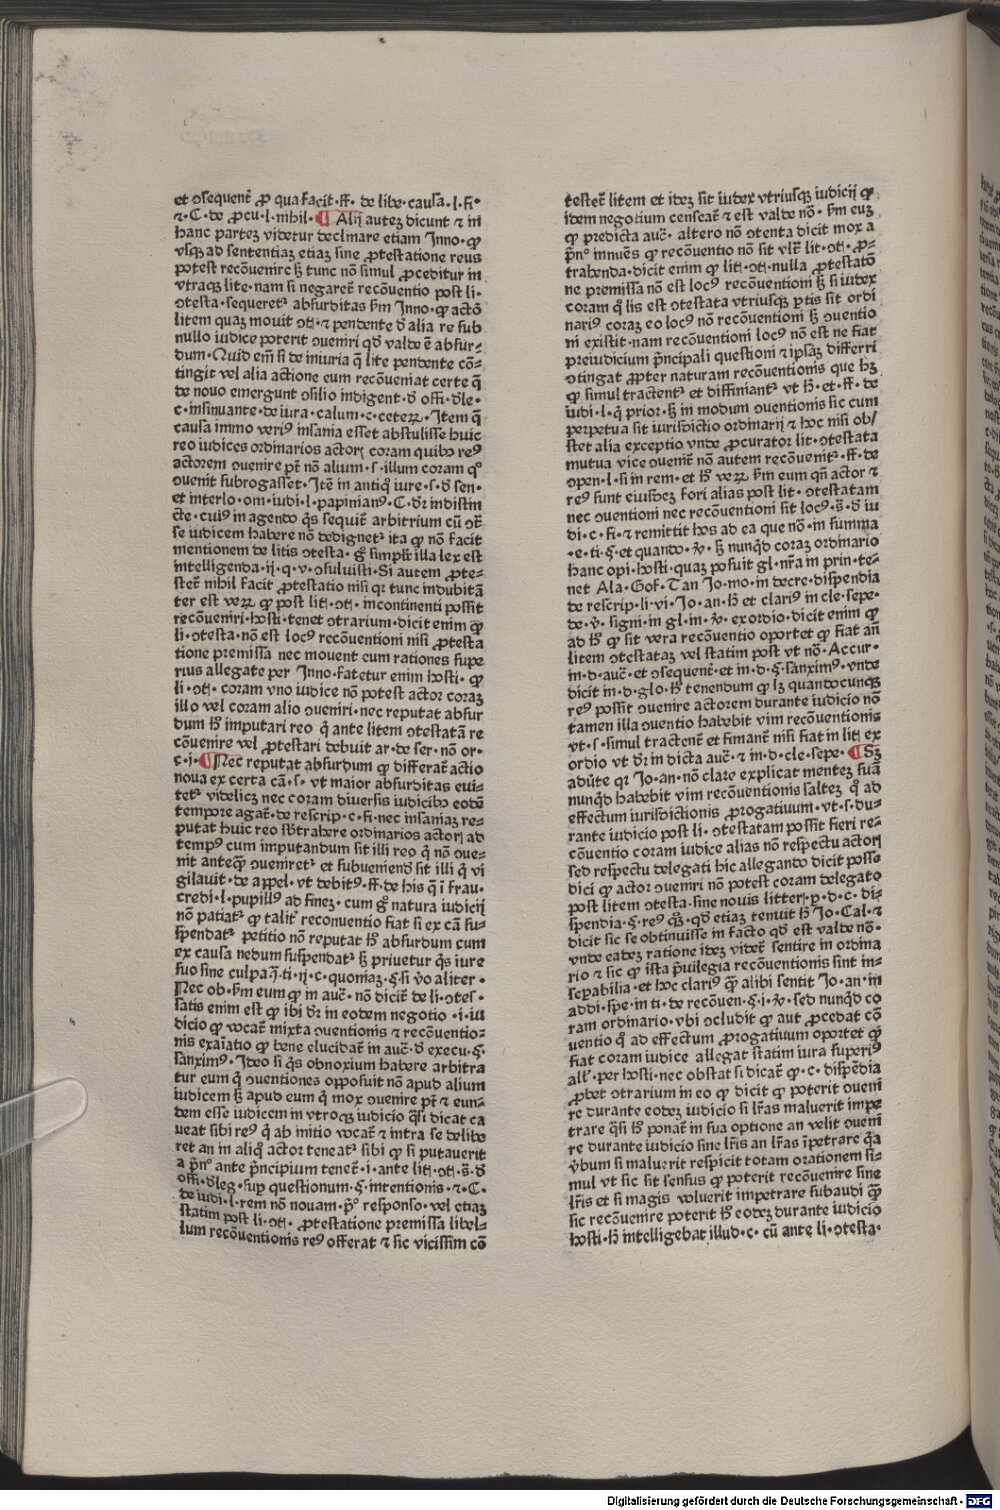 et ꝯsequent᷑ ꝓ qua facit·ff· de libe·causa·l·fi·
⁊·C·de ꝓcu·l·nihil· ¶ Alij autez dicunt ⁊ in
hanc partez videtur declinare etiam Inno·ꝙ
vsqꝫ ad sententiaz etiaz sine ꝓtestatione reus
potest recōuenire sꝫ tunc nō simul ꝓceditur in
vtraqꝫ lite·nam si negaret᷑ recōuentio post li·
ꝯtesta·sequeret᷑ absurditas ẜm Inno·ꝙ actō
litem quaz mouit ꝯtī·⁊ pendente d̄ alia re sub
nullo iudice poterit ꝯueniri qd̓ valde ē absur-
dum·Quid em̄ si de iniuria q̄ lite pendente cō-
tingit vel alia actione eum recōueniat certe q̄
de nouo emergunt ꝯsilio indigent·d̓ offi·d̓le·
c·insinuante·de iura·calum·c·ceteꝝ·Item q̄
causa immo veriꝰ insania esset abstulisse huic
reo iudices ordinarios actorꝭ coram quibꝰ reꝰ
actorem ꝯuenire pt̄ nō alium·s·illum coram qͦ
ꝯuenit subrogasset·Itē in antiqꝭ iure·s·d̓ sen·
et interlo·om·iudi·l·papinianꝰ·C·dr̄ indistin
cte·cuiꝰ in agendo qͥs sequit᷑ arbitrium cū ꝯt̄
se iudicem habere nō dedignet᷑ ita ꝙ nō facit
mentionem de litis ꝯtesta·gͦ simpłr illa lex est
intelligenda·ij·q·v·ꝯsuluisti·Si autem ꝓte-
stet᷑ nihil facit ꝓtestatio nisi qꝛ tunc indubitā
ter est veꝝ ꝙ post liti·ꝯtī·incontinenti possit
recōueniri·hosti·tenet ꝯtrarium·dicit enim ꝙ
li·ꝯtesta·nō est locꝰ recōuentioni nisi ꝓtesta
tione premissa nec mouent eum rationes supe
rius allegate per Inno·fatetur enim hosti·ꝙ
li·ꝯtī·coram vno iudice nō potest actor coraz
illo vel coram alio ꝯueniri·nec reputat absur
dum hͦ imputari reo qͥ ante litem ꝯtestatā re
cōuenire vel ꝓtestari debuit ar·de ser·nō or·
c·i· ¶ Nec reputat absurdum ꝙ differat᷑ actio
noua ex certa cā·s·vt maior absurditas eui-
tet᷑ videlicꝫ nec coram diuersis iudicibꝰ eodē
tempore agat᷑·de rescrip·c·fi·nec insaniaz re-
putat huic reo sb̄trahere ordinarios actorꝭ ad
tempꝰ cum imputandum sit illi reo qͥ nō ꝯue-
nit anteqꝫ ꝯueniret᷑ et subueniend̓ sit illi qͥ vi
gilauit·de appel·vt debitꝰ·ff·de his q̄ ī frau·
credi·l·pupillꝰ ad finez·cum gͦ natura iudicij
nō patiat᷑ ꝙ talit᷑ reconuentio fiat si ex cā su-
spendat᷑ petitio nō reputat hͦ absurdum cum
ex causa nedum suspendat᷑ sꝫ priuetur qͥs iure
suo sine culpa·q̄·ti·ij·c·quoniaz·§·si v̓o aliter·
Nec ob·ẜm eum ꝙ in auc̄·nō dicit᷑ de li·ꝯtes·
satis enim est ꝙ ibi dr̄ in eodem negotio·i·iu
dicio ꝙ vocat᷑ mixta ꝯuentionis ⁊ recōuentio-
nis exaīatio ꝙ bene elucidat᷑ in auc̄·d̓ execu·§·
sanximꝰ·Ideo si qͥs obnoxium habere arbitra
tur eum qͥ ꝯuentiones opposuit nō apud alium
iudicem sꝫ apud eum qͥ mox ꝯuenire pt̄ ⁊ eun-
dem esse iudicem in vtroqꝫ iudicio qͣsi dicat ca
ueat sibi reꝰ qͥ ab initio vocat᷑ ⁊ intra se delibe
ret an in aliqͦ actor teneat᷑ sibi ꝙ si putauerit
a pn̄ͦ ante p̄ncipium tenet᷑·i·ante liti·ꝯtī·s̄·d̓
offi·d̓leg·suꝑ questionum·§·intentionis·⁊·C·
de iudi·l·rem nō nouam·pͦ·responso·vel etiaz
statim post li·ꝯtī·ꝓtestatione premissa libel-
lum recōuentionis reꝰ offerat ⁊ sic vicissim cō
testet᷑ litem et idez sit iudex vtriusqꝫ iudicij ꝙ
idem negotium censeat᷑ ⁊ est valde nō·ẜm euz
ꝙ predicta auc̄·altero nō ꝯtenta dicit mox a
pn̄ͦ innuēs ꝙ recōuentio nō sit vlt᷑ lit·ꝯtī·ꝓ-
trahenda·dicit enim ꝙ liti·ꝯtī·nulla ꝓtestatō
ne premissa nō est locꝰ recōuentioni sꝫ si iudex
coram qͦ lis est ꝯtestata vtriusqꝫ ꝑtis sit ordi
nariꝰ coraz eo locꝰ nō recōuentioni sꝫ ꝯuentio
ni existit·nam recōuentioni locꝰ nō est ne fiat
preiudicium p̄ncipali questioni ⁊ ipsaz differri
ꝯtingat ꝓpter naturam recōuentionis que hꝫ
ꝙ simul tractent᷑ et diffiniant᷑ vt hͦ·et·ff·de
iudi·l·qͥ prior·sꝫ in modum ꝯuentionis sic cum
perpetua sit iurisdictio ordinarij ⁊ hoc nisi ob/
stet alia exceptio vnde ꝓcurator lit·ꝯtestata
mutua vice ꝯuenit᷑ nō autem recōuenit᷑·ff·de
open·l·si in rem·et hͦ veꝝ ẜm eum qn̄ actor ⁊
reꝰ sunt eiusdez fori alias post lit·ꝯtestatam
nec ꝯuentioni nec recōuentioni sit locꝰ·s̄·d̓ iu
di·c·fi·⁊ remittit hos ad ea que nō·in summa
·e·ti·§·et quando·℣·sꝫ nunqͥd coraz ordinario
hanc opi·hosti·quaz posuit gl·nr̄a in prin·te-
net Ala·Gof·Tan Io·mo·in decre·dispendia
de rescrip·li·vi·Io·an·hͦ et clariꝰ in cle·sepe·
de·v̓·signi·in gl·in·℣·exordio·dicit enim ꝙ
ad hͦ ꝙ sit vera recōuentio oportet ꝙ fiat an̄
litem ꝯtestataz vel statim post vt nō·Accur·
in·d·auc̄·et ꝯsequent᷑·et in·d·§·sanximꝰ·vnde
dicit in·d·glo·hͦ tenendum ꝙ lꝫ quandocunqꝫ
reꝰ possit ꝯuenire actorem durante iudicio nō
tamen illa ꝯuentio habebit vim recōuentionis
vt·s·simul tractent᷑ et finiant᷑ nisi fiat in liti ex
ordio vt dr̄ in dicta auc̄·⁊ in·d·cle·sepe· ¶ Sꝫ
adūte qꝛ Io·an·nō clare explicat mentez suā
nunqͥd habebit vim recōuentionis saltez qͦ ad
effectum iurisdictionis ꝓrogatiuum·vt·s·du-
rante iudicio post li·ꝯtestatam possit fieri re-
cōuentio coram iudice alias nō respectu actorꝭ
sed respectu delegati hic allegando dicit posse
dici ꝙ actor ꝯueniri nō potest coram delegato
post litem ꝯtesta·sine nouis litterꝭ·ꝑ·d·c·di-
spendia·§·reꝰ qͦꝫ·qd̓ etiaz tenuit hͦ Io·Cal·⁊
dicit sic se obtinuisse in facto qd̓ est valde nō·
vnde eadez ratione idez videt᷑ sentire in ordina
rio ⁊ sic ꝙ ista p̄uilegia recōuentionis sint in-
sepabilia·et hoc clariꝰ qꝫ alibi sentit Io·an·in
addi·spe·in ti·de recōuen·§·i·℣·sed nunqͥd co
ram ordinario·vbi ꝯcludit ꝙ aut ꝓcedat cō
uentio qͦ ad effectum ꝓrogatiuum oportet ꝙ
fiat coram iudice allegat statim iura superiꝰ
all᷑·per hosti·nec obstat si dicat᷑ ꝙ·c·dispēdia
ꝓbet ꝯtrarium in eo ꝙ dicit ꝙ poterit ꝯueni
re durante eodez iudicio si lr̄as maluerit impe
trare qͣsi hͦ ponat᷑ in sua optione an velit ꝯueni
re durante iudicio sine lr̄is an lr̄as īpetrare qͣa
v̓bum si maluerit respicit totam orationem si-
mul vt sic sit sensus ꝙ poterit recōuenire sine
lr̄is et si magis voluerit impetrare subaudi ꝙ
sic recōuenire poterit hͦ eodez durante iudicio
hosti·hͦ intelligebat illud·c·cū ante li·ꝯtesta·
Digitalisierung gefördert durch die Deutsche Forschungsgemeinschaft - DFG